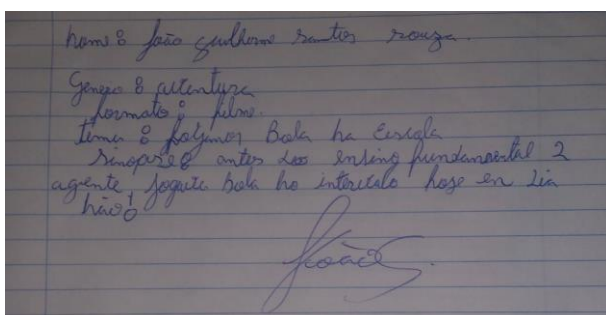 nome: joão guilherme santos souza.
Genero: aventura
formato: filme.
tema: Bola na Escola
sinopse: antes do ensino fundamental 2
agente jogava bola no intervalo hoje en dia
não!
João S.